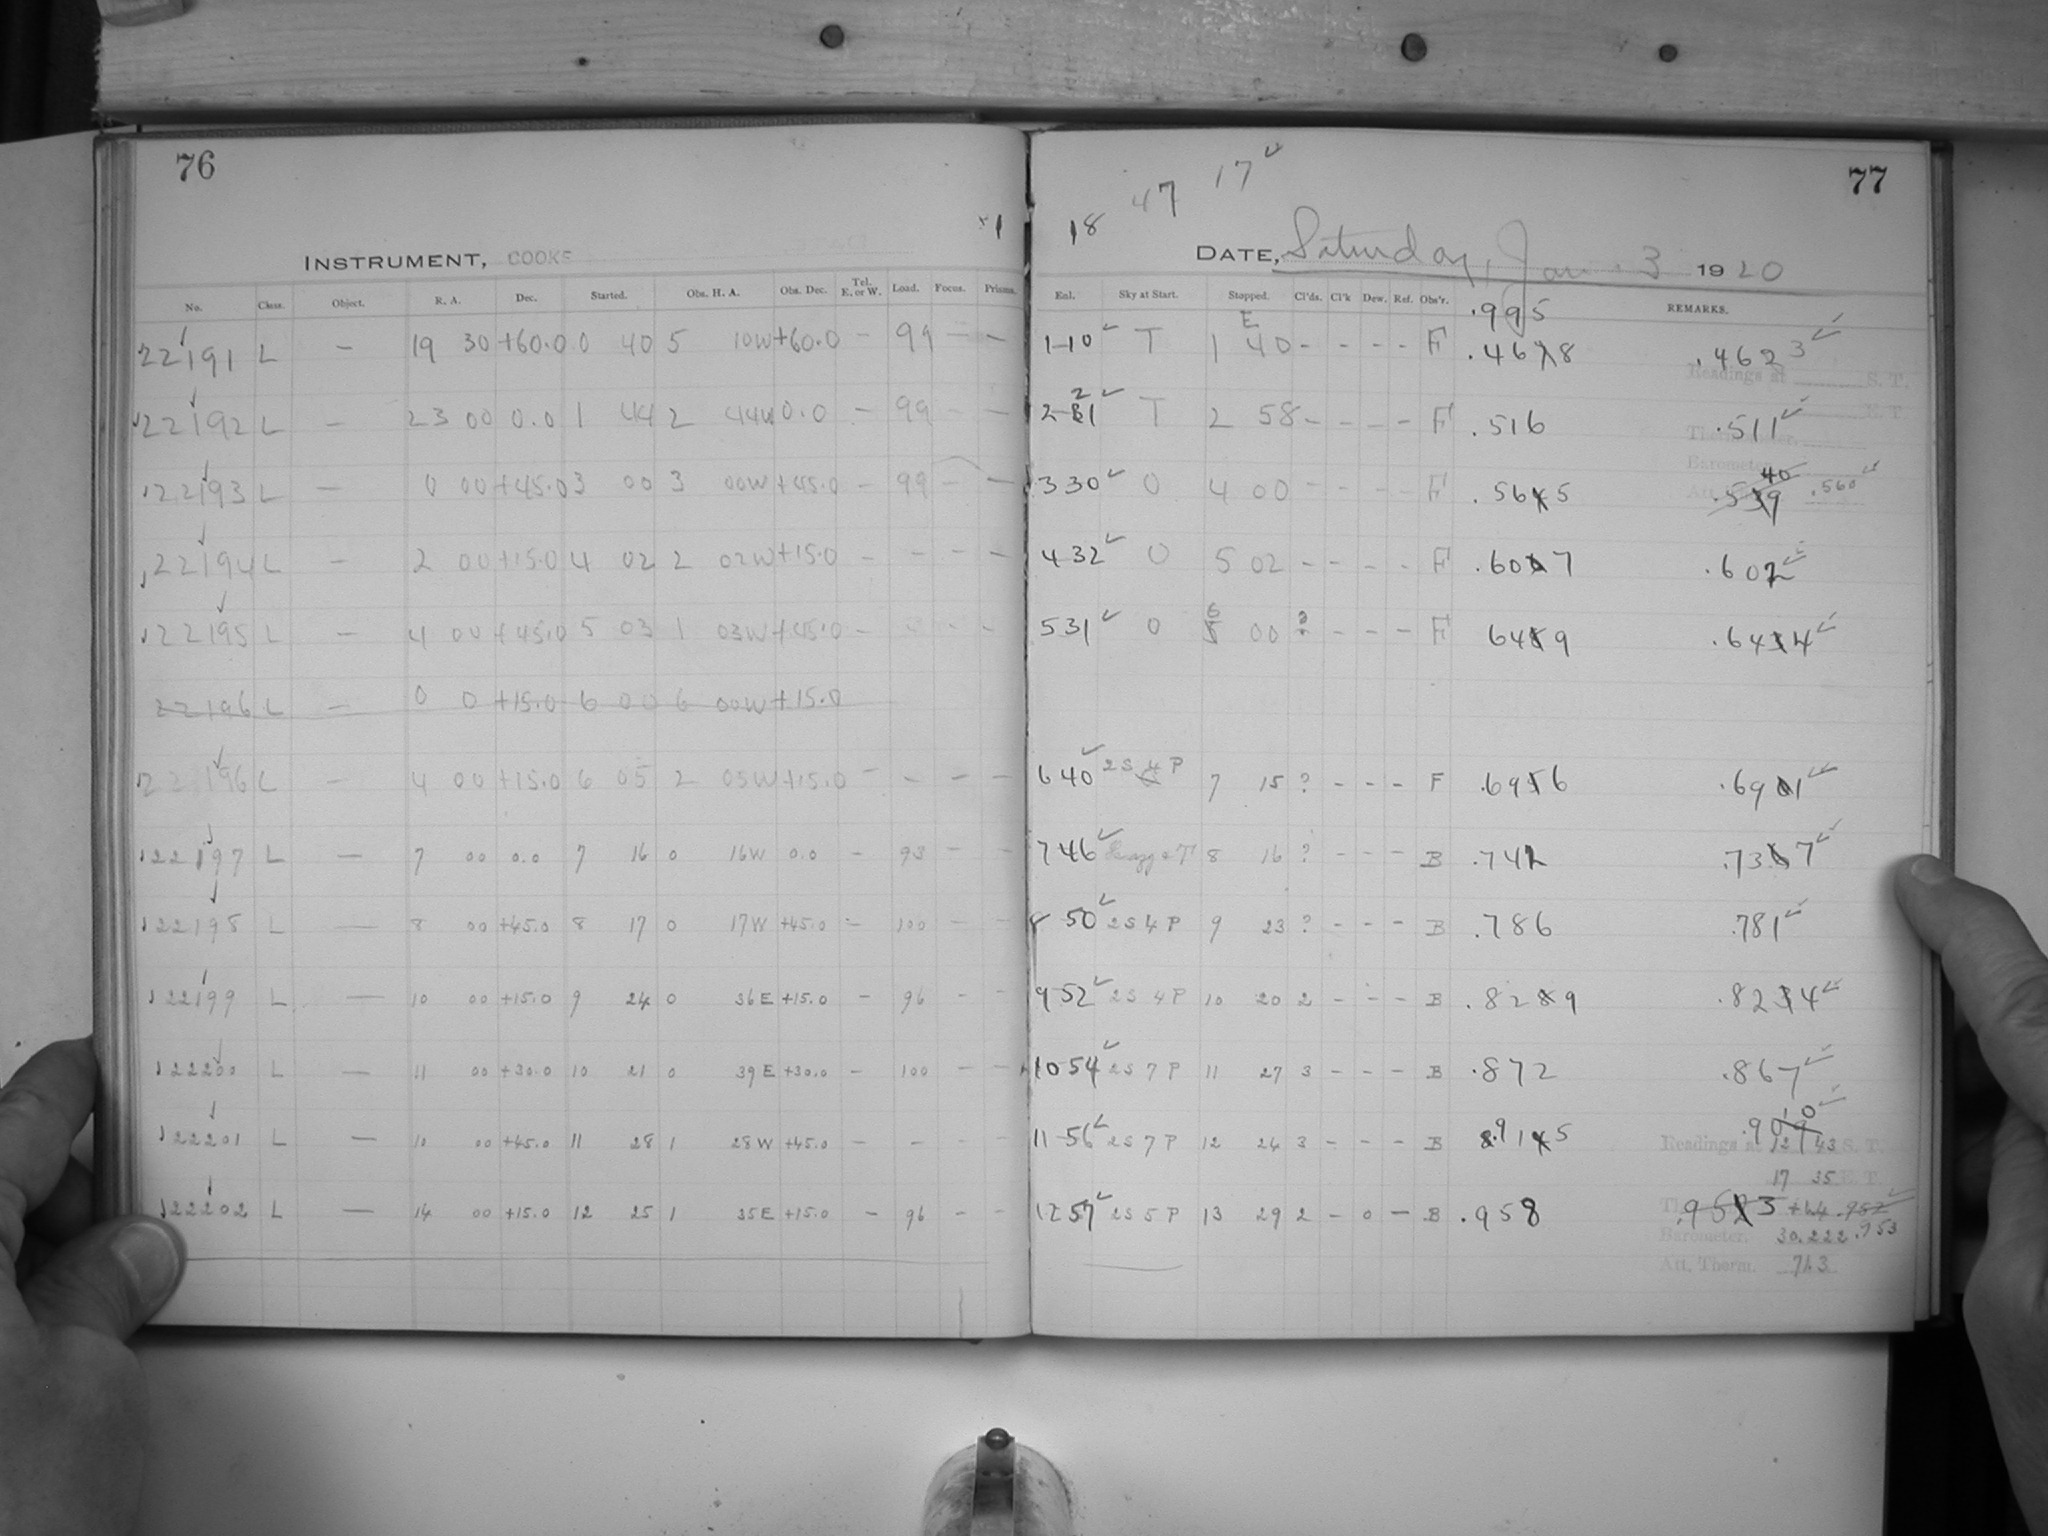 76
×1
INSTRUMENT, COOKE
No. Class. Object. R. A. Dec. Started. Obs. H. A. Obs. Dec. Tel. E. or W. Load. Focus. Prisms.
22191 L — 19 30 +60.0 0 40 5 10W +60.0 — 99 — —
22192 L — 23 00 0.0 1 44 2 44W 0.0 — 99 — —
22193 L — 0 00 +45.0 3 00 3 00W +45.0 — 99 — —
22194 L — 2 00 +15.0 4 02 2 02W +15.0 — — — —
22195 L — 4 00 +45.0 5 03 1 03W +45.0 — — —
22196 L — 0 0 +15.0 6 00 6 00W +15.0
22196 L — 4 00 +15.0 6 05 2 05W +15.0 — — — —
22197 L — 7 00 0.0 7 16 0 16W 0.0 — 93 — —
22198 L — 8 00 +45.0 8 17 0 17W +45.0 — 100 — —
22199 L — 10 00 +15.0 9 24 0 36E +15.0 — 96 — —
22200 L — 11 00 +30.0 10 21 0 39E +30.0 — 100 — —
22201 L — 10 00 +45.0 11 28 1 28W +45.0 — — — —
22202 L — 14 00 +15.0 12 25 1 35E +15.0 — 96 — —
77
18 47 17
DATE, Saturday, Jan. 3 1920
Enl. Sky at Start. Stopped. Cl'ds. Cl'k Dew. Ref. Obs'r. REMARKS.
.995
E
1 10 T 1 40 - - - - F .468 .4623
Readings at S. T.
2 21 T 2 58 - - - - F .516 .511
E. T.
Barometer 40
3 30 O 4 00 - - - - F .565 .539 .560
4 32 O 5 02 - - - - F .607 .602
5 31 O 6 00 ? - - - F 649 .644
6 40 2S 4 P 7 15 ? - - - F .696 .691
7 46 8 16 ? - - - B .742 .737
8 50 2S 4 P 9 23 ? - - - B .786 .781
9 52 2S 4 P 10 20 2 - - - B .829 .824
10 54 2S 7 P 11 27 3 - - - B .872 .867
11 56 2S 7 P 12 24 3 - - - B .915 .909 10
Readings at 12 43 S. T.
17 35 E. T.
12 57 2S 5 P 13 29 2 - 0 - B .958 .953 .952
Barometer. 30.222 .953
Att. Therm. 71.3